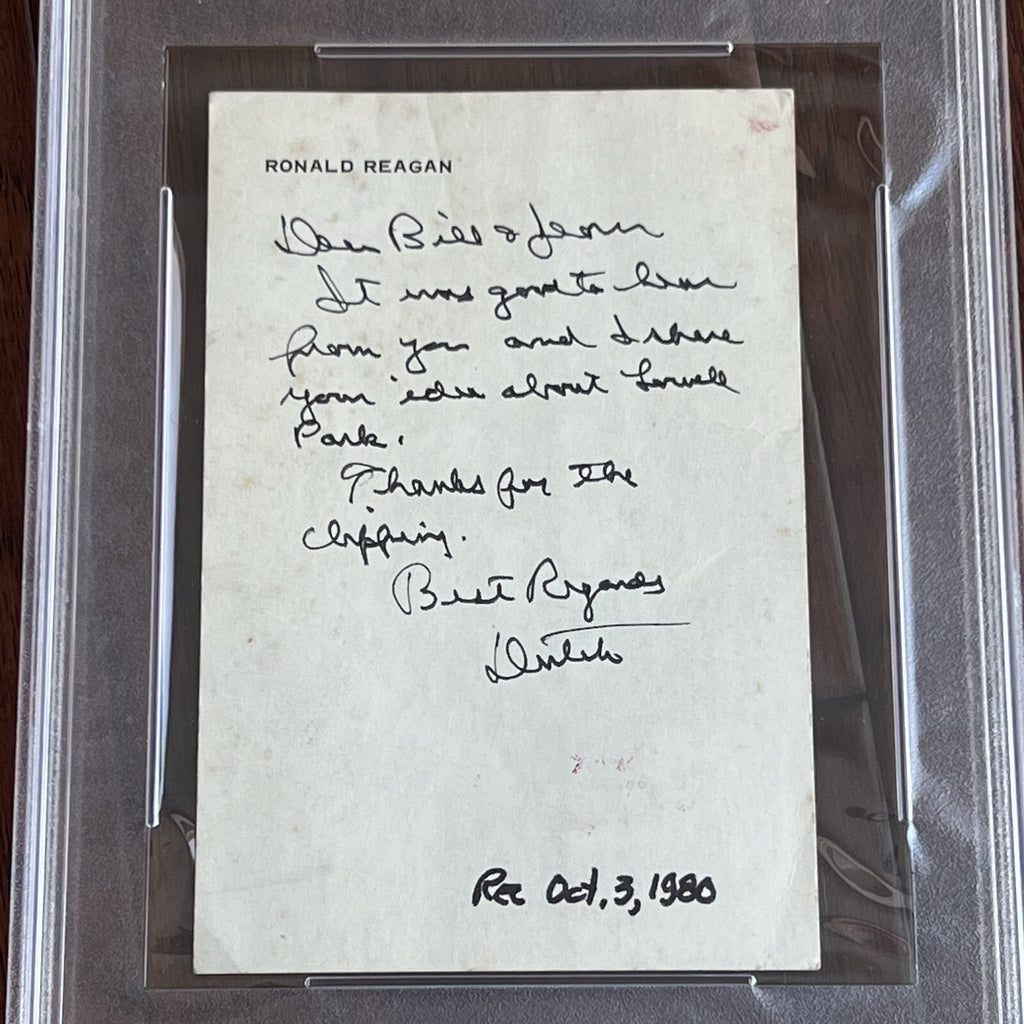 RONALD REAGAN
Dear Bill &
It was good to hear
from you and I share
your idea about Lowell
Park.
Thanks for the
clipping.
Best Regards
Dutch
Rec Oct. 3, 1980